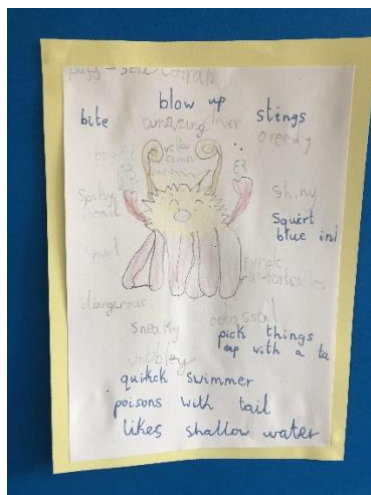 blow up
bite stings
amazing clever greedy
shiny
Spiky
head
Squirt
blue ink
Smart
dangerous
Sneaky colossal
pick things
up with a ta
wobbley
quikck swimmer
poisons with tail
likes shallow water